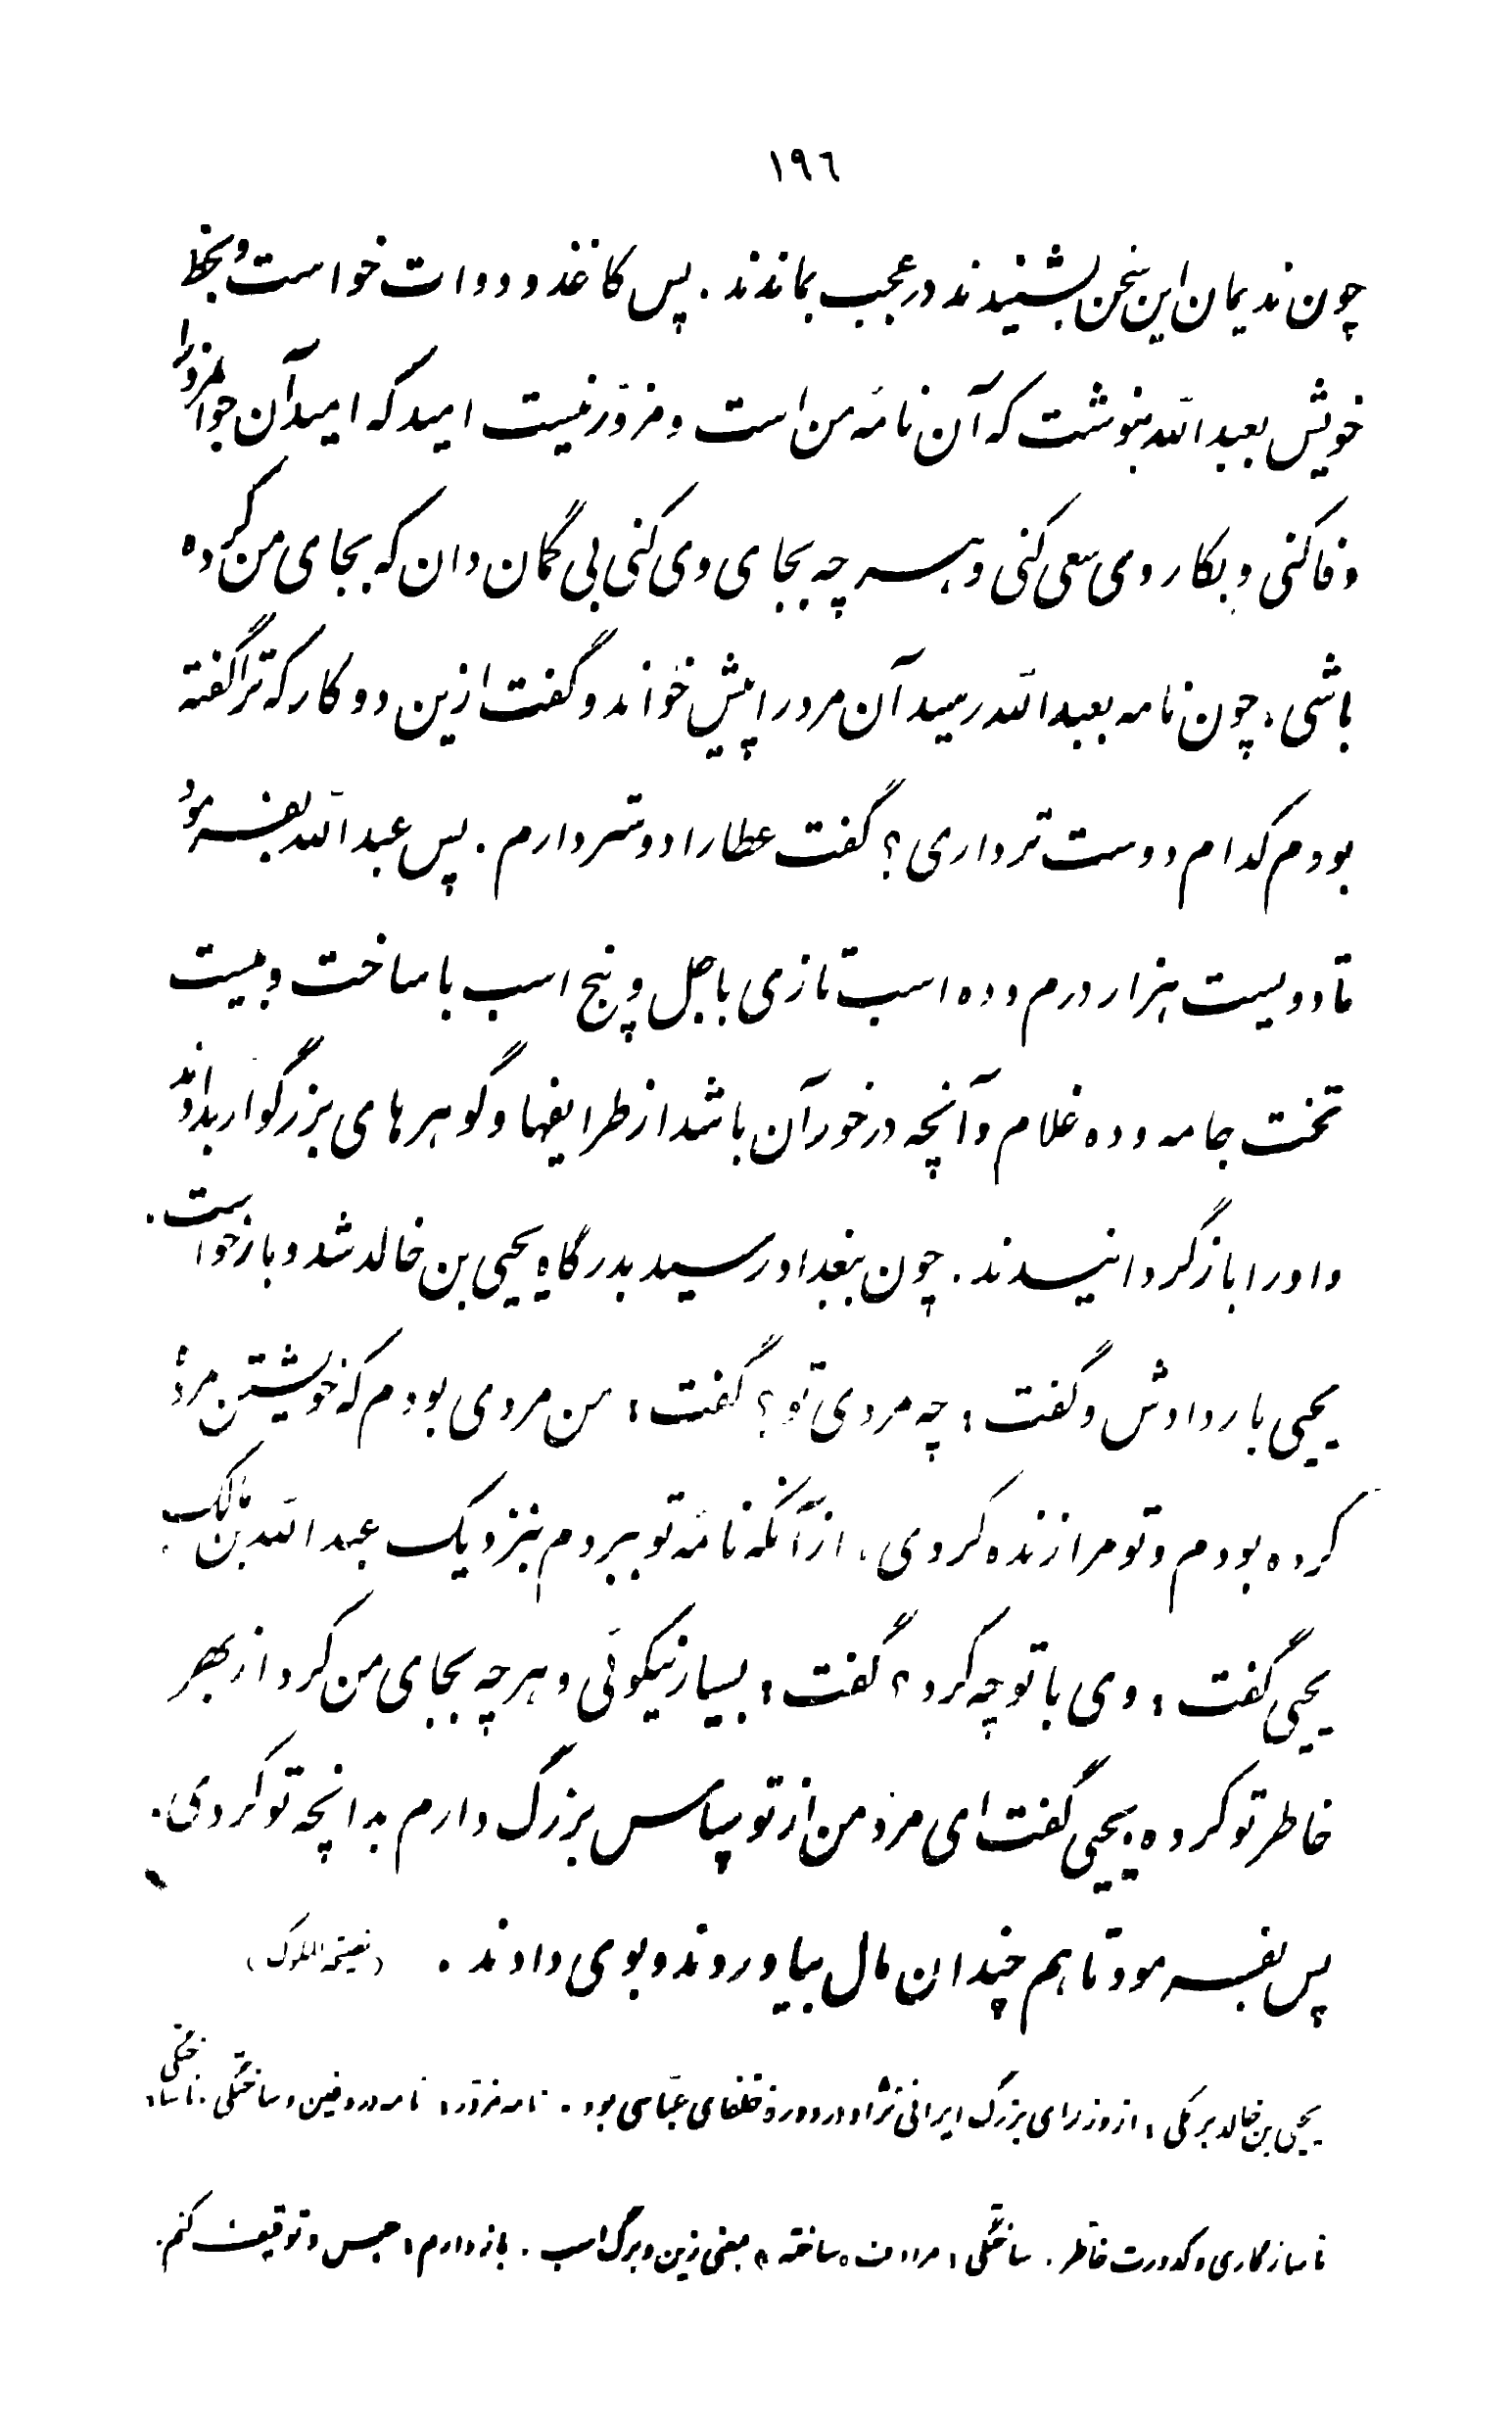 ۱۹۶
چون ندیمان این سخن بشنیدند در عجب بماندند . پس کاغذ و دوات خواست و بخط
خویش بعبدالله بنوشت که آن نامهٔ من است و مزوّر نیست امید که امید آن جوانمرد را
وفا کنی و بکار وی سعی کنی و هر چه بجای وی کنی بی گمان دان که بجای من کرده
باشی ، چون نامه بعبدالله رسید آن مرد را پیش خواند و گفت ازین دو کار که ترا گفته
بودم کدام دوست تر داری ؟ گفت عطا را دوستر دارم . پس عبدالله بفرمود
تا دویست هزار درم و ده اسب تازی با جل و پنج اسب با ساخت و بیست
تخت جامه و ده غلام و آنچه در خور آن باشد از ظرایفها و گوهرهای بزرگوار بدادند
و او را باز گردانیدند . چون ببغداد رسید بدرگاه یحیی بن خالد شد و بار خواست .
یحیی بار دادش و گفت : چه مردی تو ؟ گفت : من مردی بودم که خویشتن مرده
کرده بودم و تو مرا زنده کردی ، از آنکه نامهٔ تو ببردم بنزدیک عبدالله بن مالک
یحیی گفت : وی با تو چه کرد ؟ گفت : بسیار نیکوئی و هر چه بجای من کرد از بهر
خاطر تو کرده ، یحیی گفت ای مرد من از تو سپاس بزرگ دارم بدانچه تو کردی .
پس بفرمود تا هم چندان مال بیاوردند و بوی دادند . (نصیحة الملوک)
یحیی بن خالد برمکی : از وزرای بزرگ ایرانی نژاد در دورهٔ خلفای عبّاسی بود . نامه مزوّر : نامه دروغین و ساختگی . ناساختگی :
ناسازگاری و کدورت خاطر . ساختگی : مرادف « ساخته » بمعنی زین و برگ اسب . باز دارم : حبس و توقیف کنم .